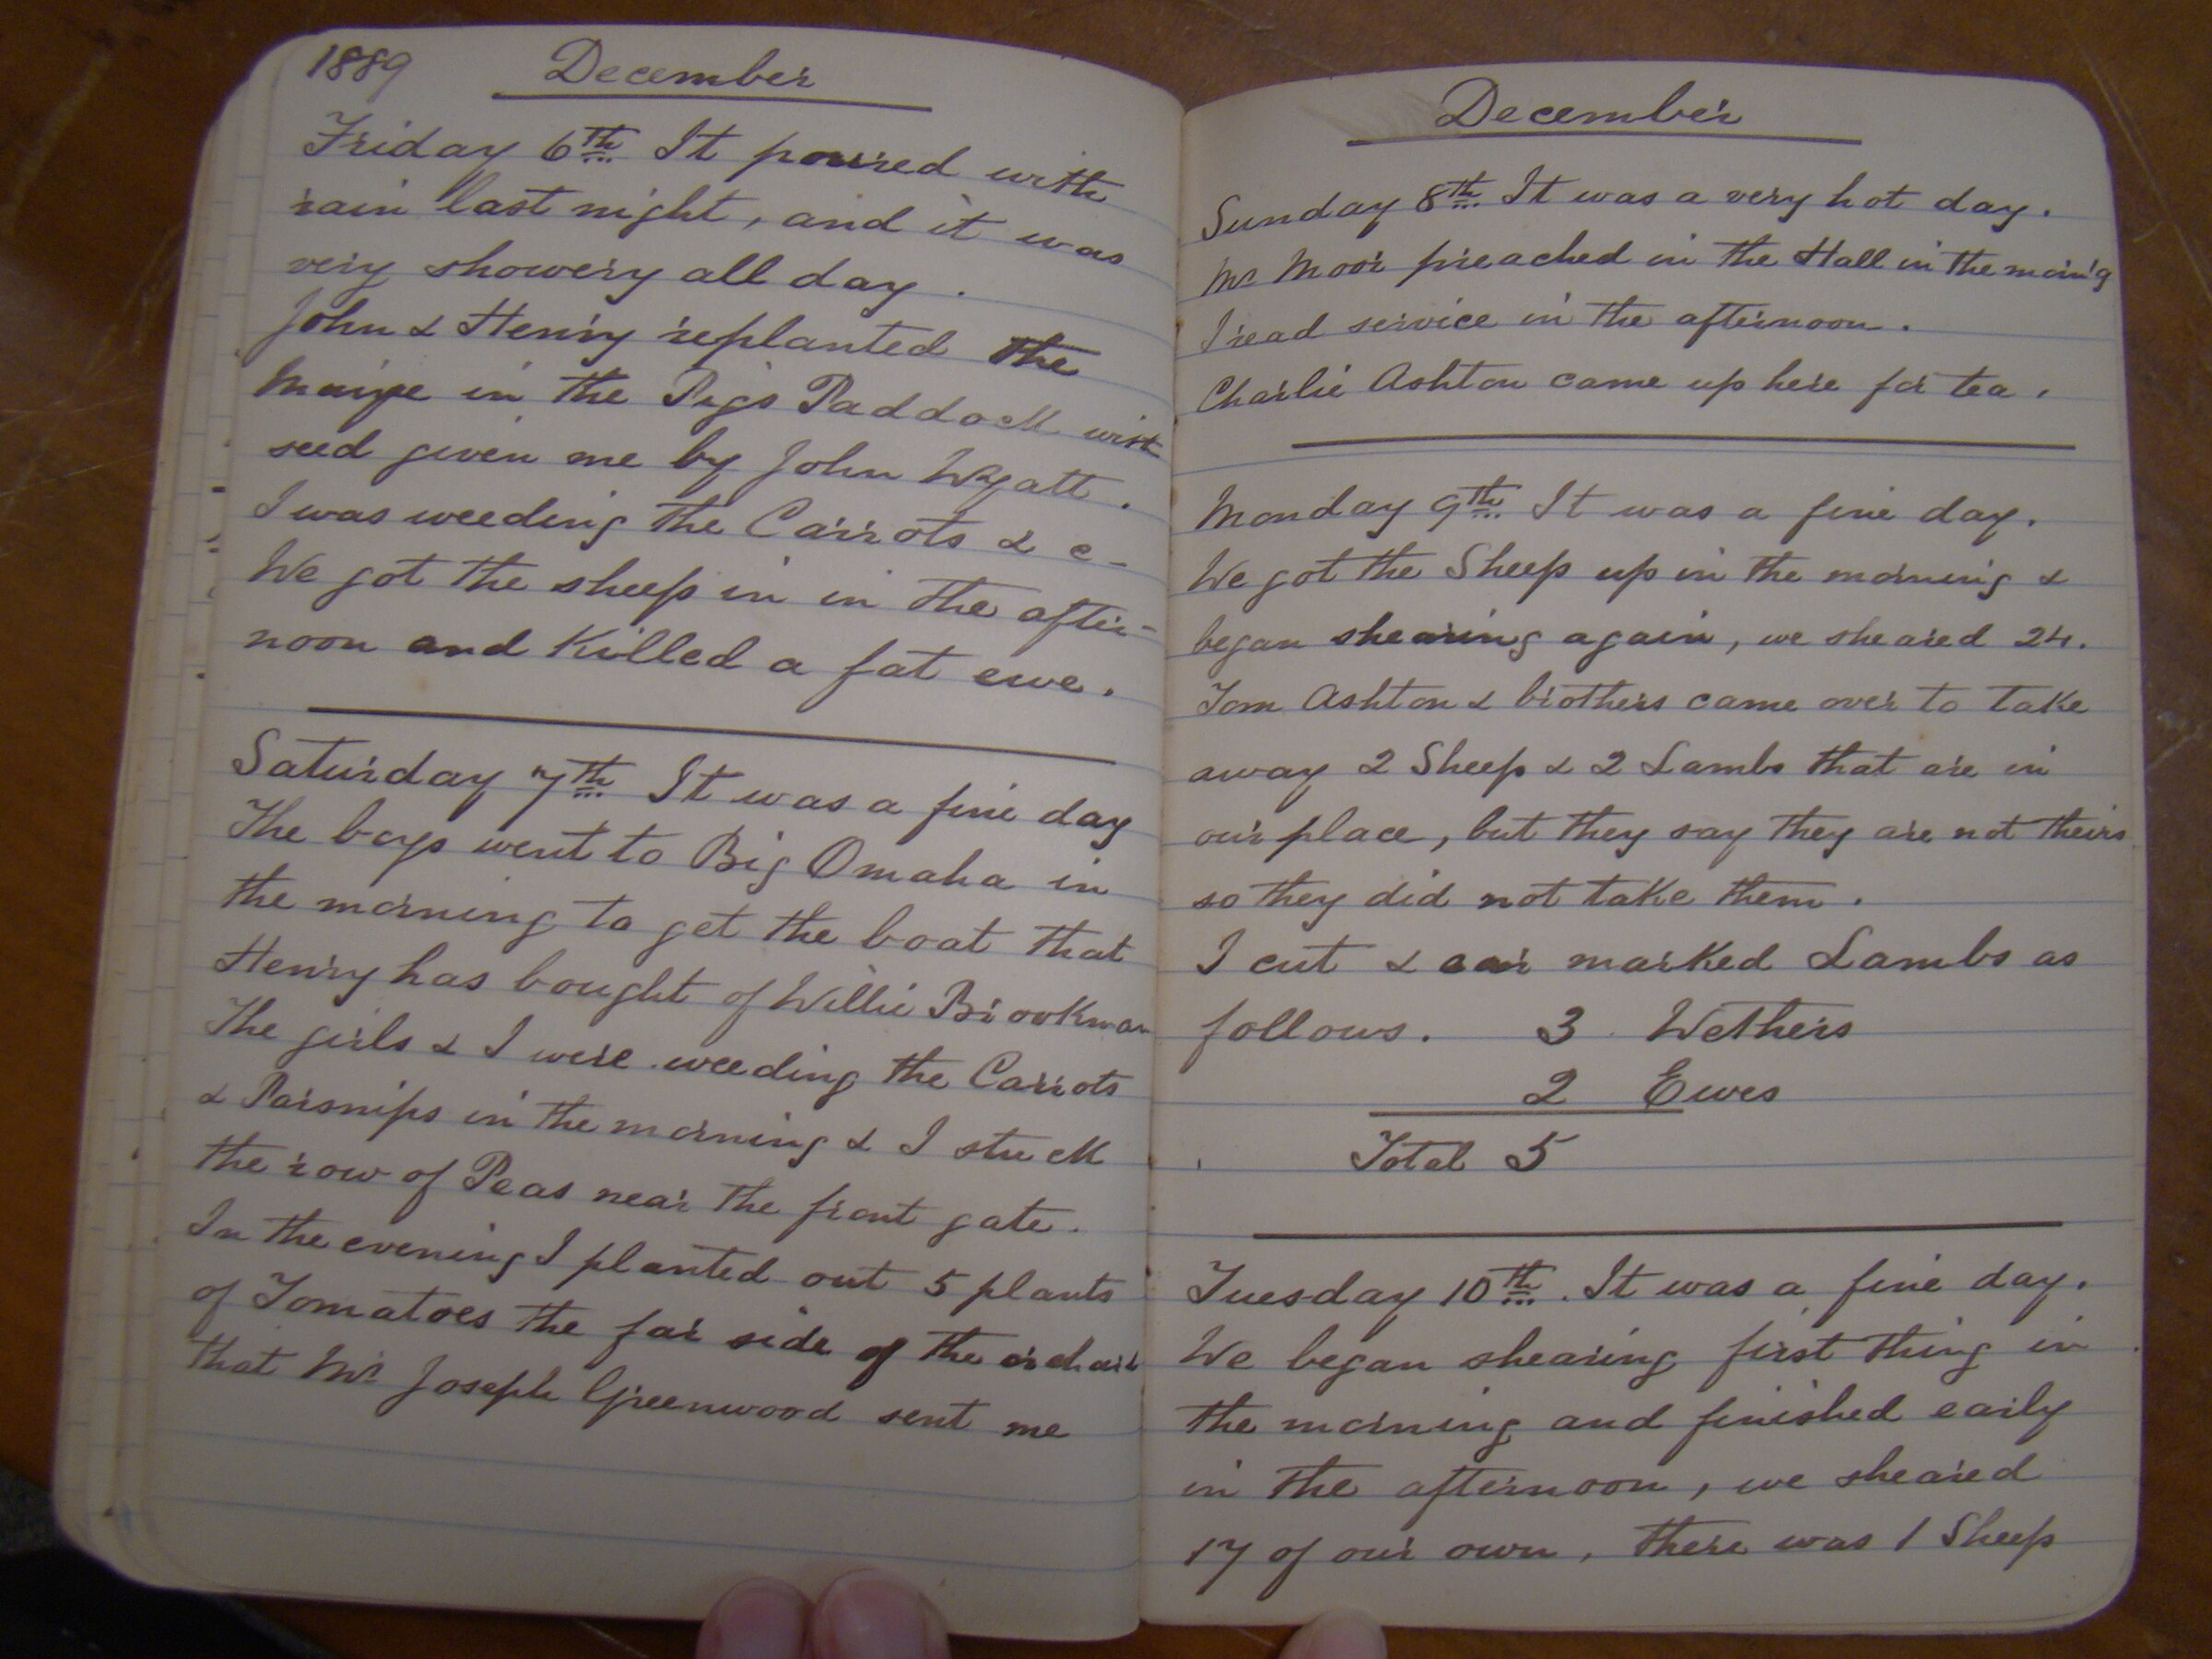 1889 December
Friday 6th It poured with
rain last night, and it was
very showery all day.
John & Henry replanted the
Maize in the Pigs Paddock with
seed given me by John Wyatt.
I was weeding the Carrots & c-
We got the sheep in in the after-
noon and killed a fat ewe.
Saturday 7th It was a fine day
The boys went to Big Omaha in
the morning to get the boat that
Henry has bought of Willie Brookman
The girls & I were weeding the Carrots
& Parsnips in the morning & I stuck
the row of Peas near the front gate.
In the evening I planted out 5 plants
of Tomatoes the far side of the orchard
that Mr Joseph Greenwood sent me
December
Sunday 8th It was a very hot day.
Mr Moor preached in the Hall in the morn'g
I read service in the afternoon.
Charlie Ashton came up here for tea.
Monday 9th It was a fine day.
We got the Sheep up in the morning &
began shearing again, we sheared 24.
Tom Ashton & brothers came over to take
away 2 Sheep & 2 Lambs that are in
our place, but they say they are not theirs
so they did not take them.
I cut & ear marked Lambs as
follows. 3 Wethers
2 Ewes
Total 5
Tuesday 10th. It was a fine day.
We began shearing first thing in
the morning and finished early
in the afternoon, we sheared
17 of our own, there was 1 Sheep